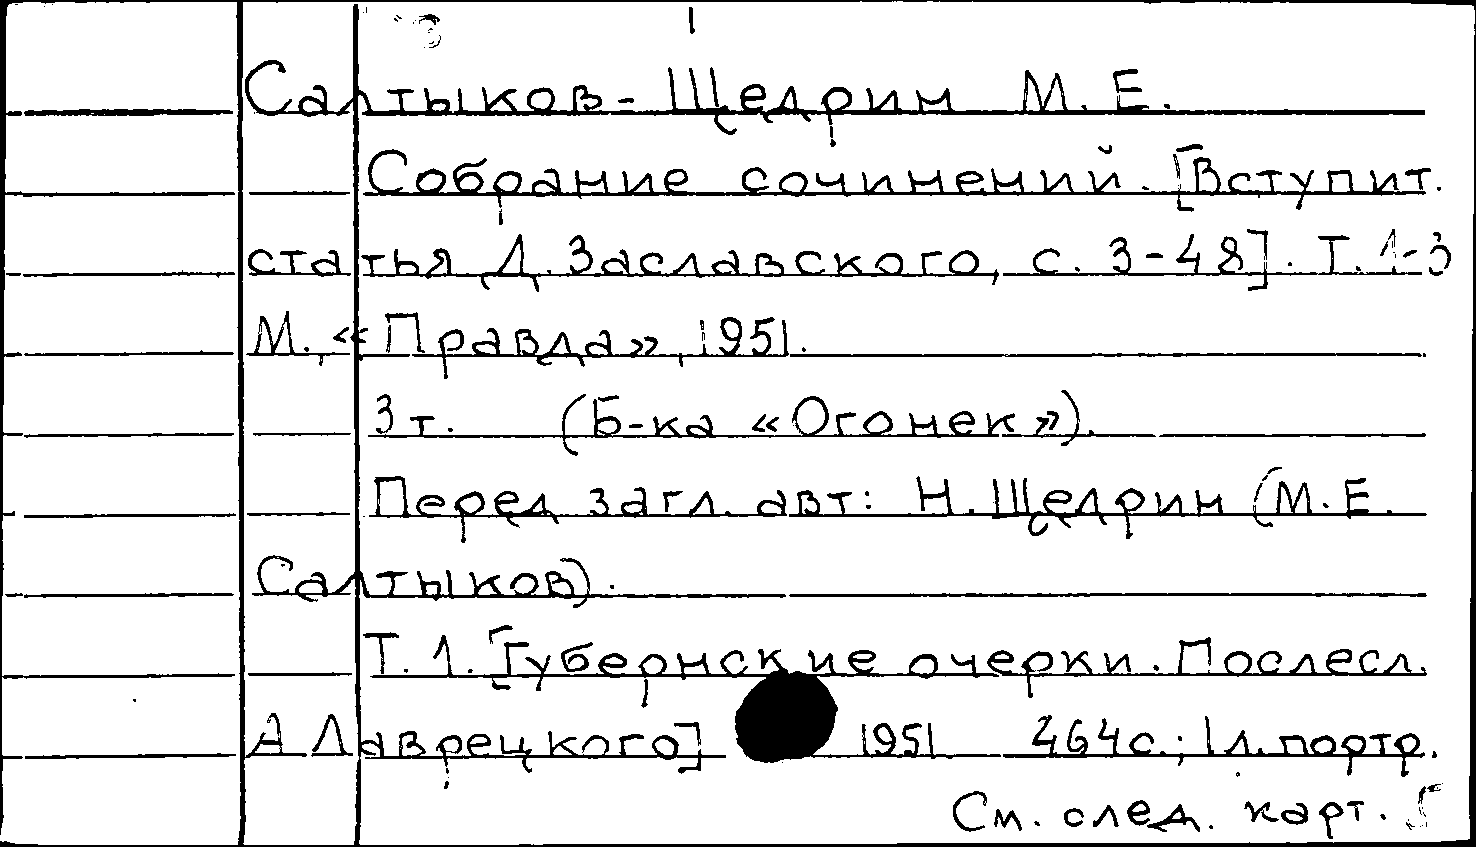 1
Салтыков-Щедрин М. Е.
Собрание сочинений. [Вступит.
статья Д. Заславского, с. 3-48]. Т. 1-3
М., «Правда», 1951.
3 т. (Б-ка «Огонек»).
Перед загл. авт: Н. Щедрин (М. Е.
Салтыков).
Т. 1. [Губернские очерки. Послесл.
А Лаврецкого] 1951 464 с.; 1 л. портр.
См. след. карт.